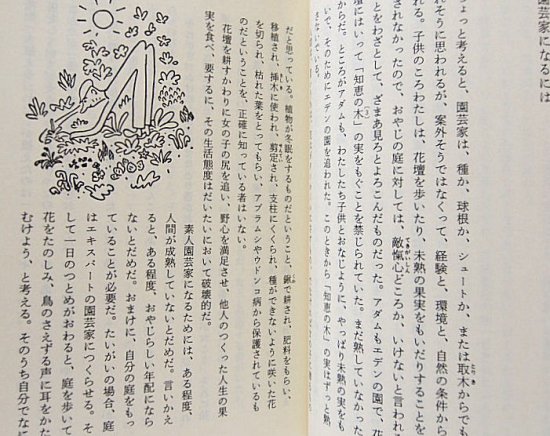 園芸家になるには
ょっと考えると、園芸家は、種か、球根か、シュートか、または取木からでも
れそうに思われるが、案外そうではなくて、経験と、環境と、自然の条件から
れる。子供のころわたしは、花壇を歩いたり、未熟の果実をもいだりすることを
されなかったので、おやじの庭に対しては、敵愾心どころか、いけないと言われ
ことをわざとして、ざまあ見ろとよろこんだものだった。アダムもエデンの園で、
壇にはいって「知恵の木」の実をもぐことを禁じられていた。まだ熟していなかった
からだ。ところがアダムも、わたしたち子供とおなじように、やっぱり未熟の実をも
いで、そのためにエデンの園を追われた。このときから「知恵の木」の実はずっと熟
だと思っている。植物が冬眠をするものだということ、鍬で耕され、肥料をもらい、
移植され、挿木に使われ、剪定され、支柱にくくられ、種ができないように咲いた花
を切られ、枯れた葉をとってもらい、アブラムシやウドンコ病から保護されているも
のだということを、正確に知っている者はいない。
花壇を耕すかわりに女の子の尻を追い、野心を満足させ、他人のつくった人生の果
実を食べ、要するに、その生活態度はだいたいにおいて破壊的だ。
素人園芸家になるためには、ある程度、
人間が成熟していないとだめだ。言いかえ
ると、ある程度、おやじらしい年配になら
ないとだめだ。おまけに、自分の庭をもっ
ていることが必要だ。たいがいの場合、庭
はエキスパートの園芸家につくらせる。そ
して一日のつとめがおわると、庭を歩いて
花をたのしみ、鳥のさえずる声に耳をかた
むけよう、と考える。そのうち自分でなに